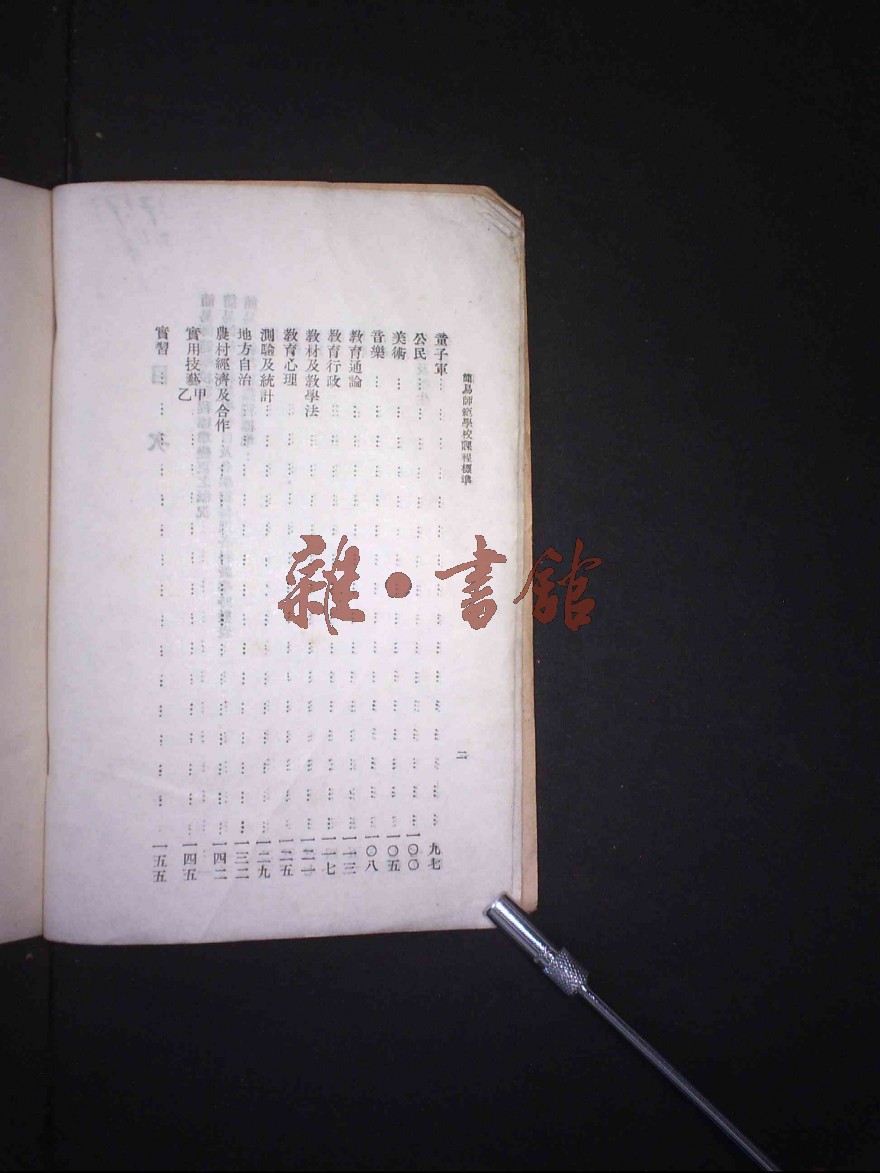 簡易師範學校課程標準
二
童子軍……九七
公民……一〇〇
美術……一〇五
音樂……一〇八
教育通論……一一三
教育行政……一一七
教材及教學法……一二一
教育心理……一二五
測驗及統計……一二九
地方自治……一三二
農村經濟及合作……一四二
實用技藝甲乙……一四五
實習……一五五
雜·書館